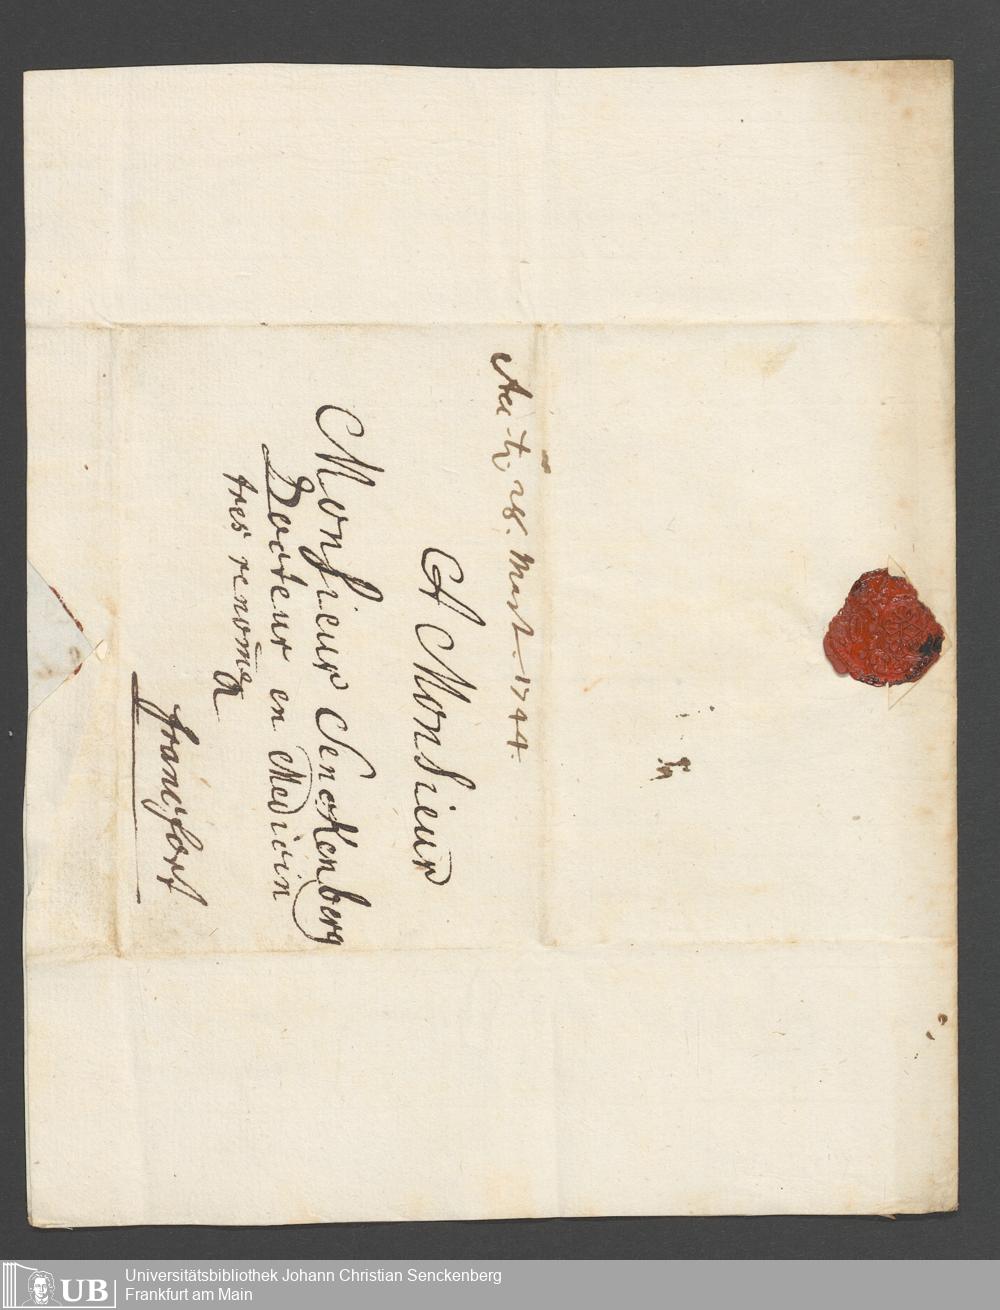 28. Mart. 1744.
A Monsieur
Monsieur Senckenberg
Docteur en Medicin
tres renom̄ee
a
francfort
UB
Universitätsbibliothek Johann Christian Senckenberg
Frankfurt am Main